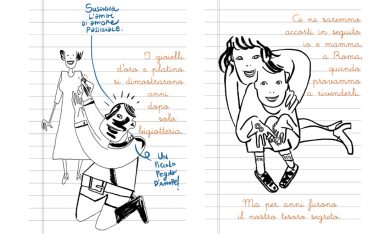 SUSANNA
L'AMOR
DI AMORE
PASSIONALE.
I gioielli
d'oro e platino
si dimostrarono
anni
dopo
solo
bigiotteria.
UN
PICCOLO
PEGNO
D'AMORE!
Ce ne saremmo
accorti in seguito
io e mamma,
a Roma,
quando
provammo
a rivenderli.
Ma per anni furono
il nostro tesoro segreto.